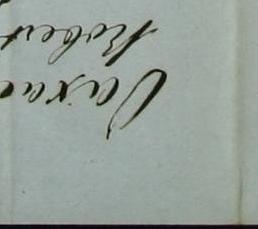 Oaxac
Robert